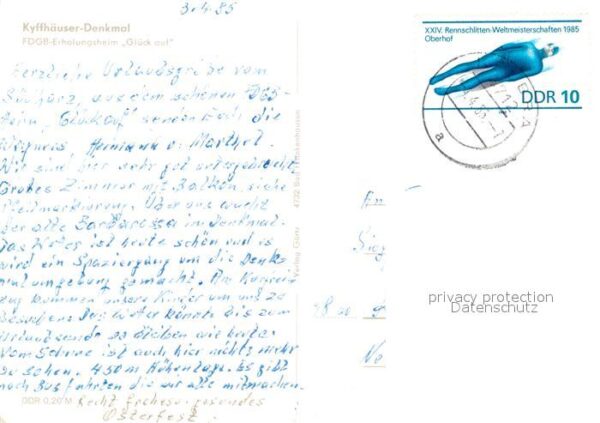 3.4.85
Kyffhäuser-Denkmal
FDGB-Erholungsheim „Glück auf"
Herzliche Urlaubsgrüße vom
Südharz, aus dem schönen
Heim, "Glück auf" senden Euch die
Hermann u. Marthel.
Wir sind hier sehr gut untergebracht.
Großes Zimmer mit Balkon, siehe
Über uns wacht
der alte Barbarossa im Denkmal.
Das Wetter ist heute schön und es
wird ein Spaziergang um die Denk-
mal umgebung gemacht. Am Karfrei-
tag kommen unsere Kinder um uns zu
besuchen. Das Wetter könnte bis zum
Urlaubsende so bleiben wie heute.
Vom Schnee ist auch hier nichts mehr
zu sehen. 450 m Höhenlage. Es gibt
noch Busfahrten die wir alle mitmachen.
Recht frohes u. gesundes
Osterfest.
DDR 0,20 M
Verlag Görtz
4732 Bad Frankenhausen
XXIV. Rennschlitten-Weltmeisterschaften 1985
Oberhof
DDR 10
a
privacy protection
Datenschutz